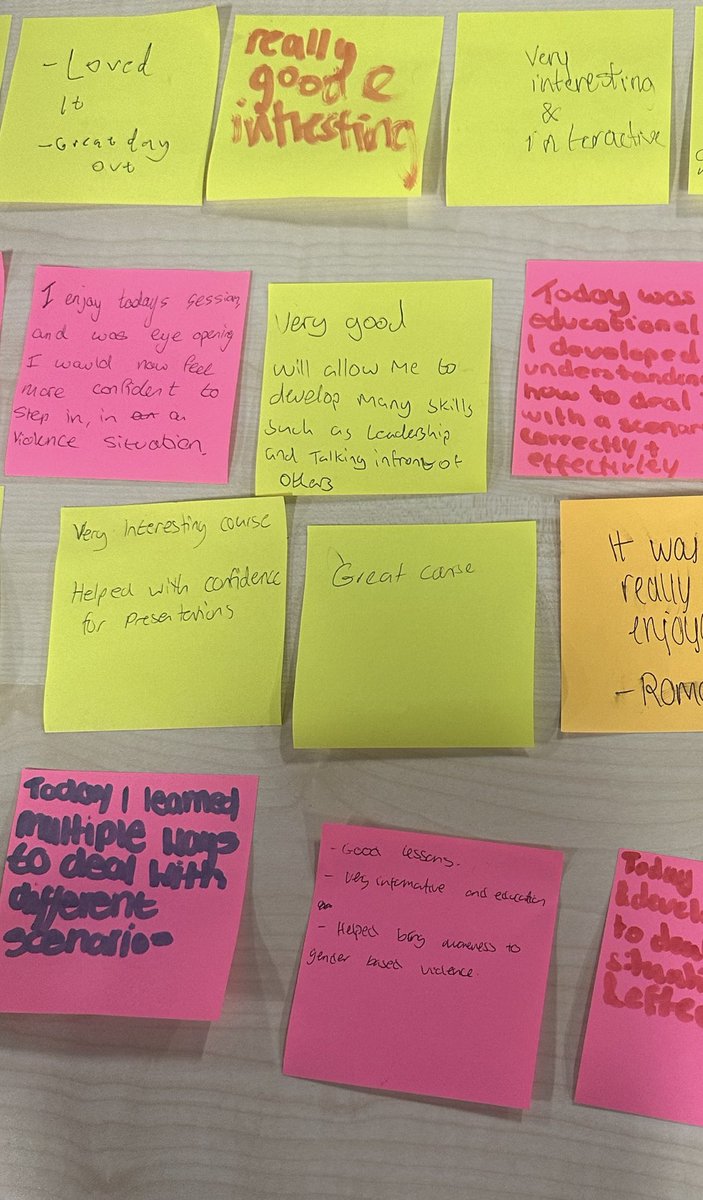 - Loved
it
- Great day
out
really
good &
intresting
Very
interesting
&
interactive
I enjoy todays session,
and was eye opening
I would now feel
more confident to
Step in, in a
violence situation.
Very good
will allow me to
develop many skills
such as leadership
and Talking infront of
others
Today was
educational
I developed
how to deal
with a
correctly +
effectivley
Very Interesting course
Helped with confidence
for presentations
Great corse
It was
really
- 
Today I learned
multiple ways
to deal with
different
scenario
- Good lessons.
- Very informative and education
- Helped bring awareness to
gender based violence.
Today
to